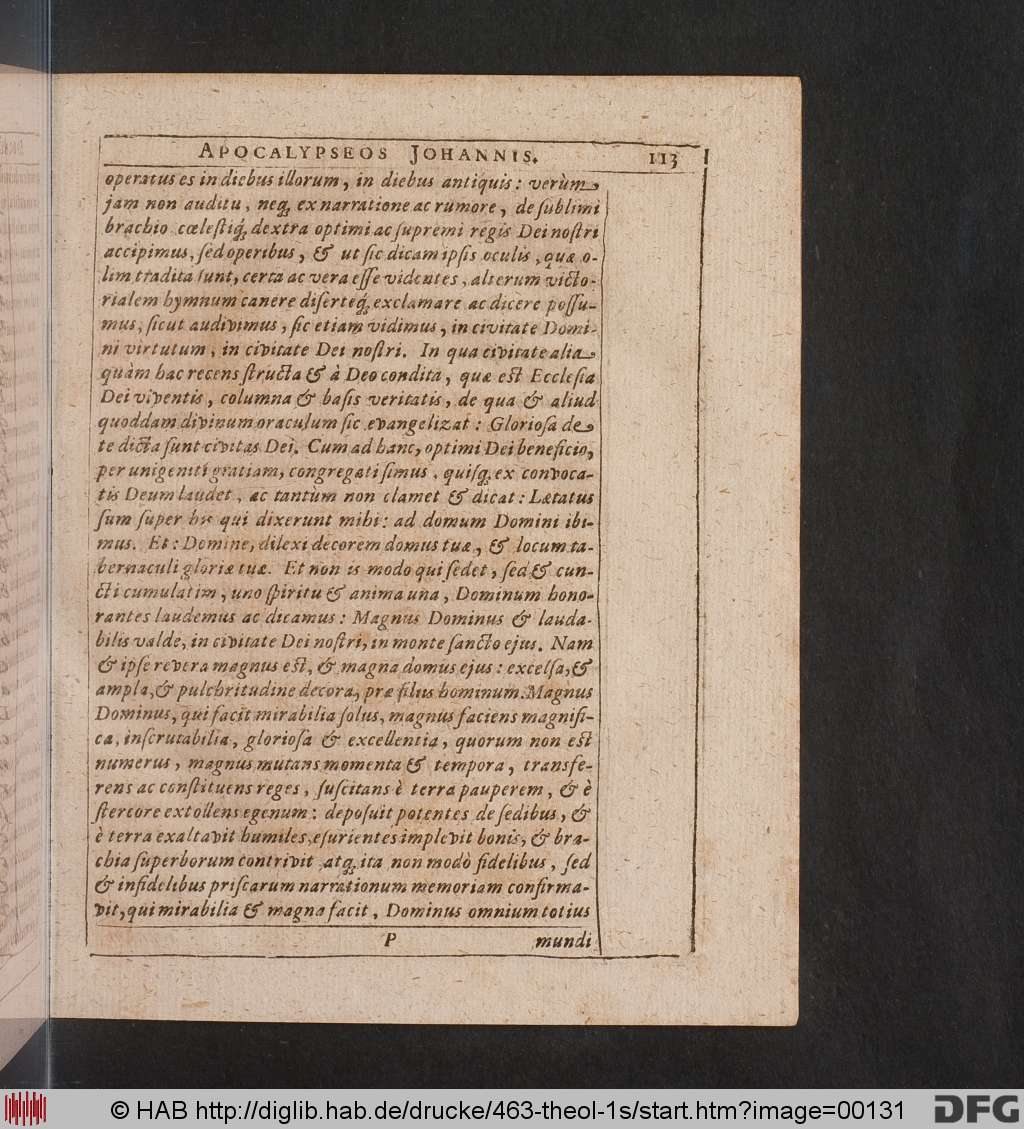 APOCALYPSEOS JOHANNIS. 113
operatus es in diebus illorum, in diebus antiquis: verùm
jam non auditu, neq; ex narratione ac rumore, de sublimi
brachio cœlestiq́; dextra optimi ac supremi regis Dei nostri
accipimus, sed operibus, & ut sic dicam ipsis oculis, quæ o-
lim tradita sunt, certa ac vera esse videntes, alterum victo-
rialem hymnum canere diserteq́; exclamare ac dicere possu-
mus, sicut audivimus, sic etiam vidimus, in civitate Domi-
ni virtutum, in civitate Dei nostri. In qua civitate alia
quàm hac recens structa & à Deo condita, quæ est Ecclesia
Dei viventis, columna & basis veritatis, de qua & aliud
quoddam divinum oraculum sic evangelizat: Gloriosa de
te dicta sunt civitas Dei. Cum ad hanc, optimi Dei beneficio,
per unigeniti gratiam, congregati simus, quisq; ex convoca-
tis Deum laudet, ac tantum non clamet & dicat: Lætatus
sum super his qui dixerunt mihi: ad domum Domini ibi-
mus. Et: Domine, dilexi decorem domus tuæ, & locum ta-
bernaculi gloriæ tuæ. Et non is modo qui sedet, sed & cun-
cti cumulatim, uno spiritu & anima una, Dominum hono-
rantes laudemus ac dicamus: Magnus Dominus & lauda-
bilis valde, in civitate Dei nostri, in monte sancto ejus. Nam
& ipse revera magnus est, & magna domus ejus: excelsa, &
ampla, & pulchritudine decora, præ filiis hominum. Magnus
Dominus, qui facit mirabilia solus, magnus faciens magnifi-
ca, inscrutabilia, gloriosa & excellentia, quorum non est
numerus, magnus mutans momenta & tempora, transfe-
rens ac constituens reges, suscitans è terra pauperem, & è
stercore extollens egenum: deposuit potentes de sedibus, &
è terra exaltavit humiles, esurientes implevit bonis, & bra-
chia superborum contrivit atq; ita non modò fidelibus, sed
& infidelibus priscarum narrationum memoriam confirma-
vit, qui mirabilia & magna facit, Dominus omnium totius
P mundi
© HAB http://diglib.hab.de/drucke/463-theol-1s/start.htm?image=00131
DFG